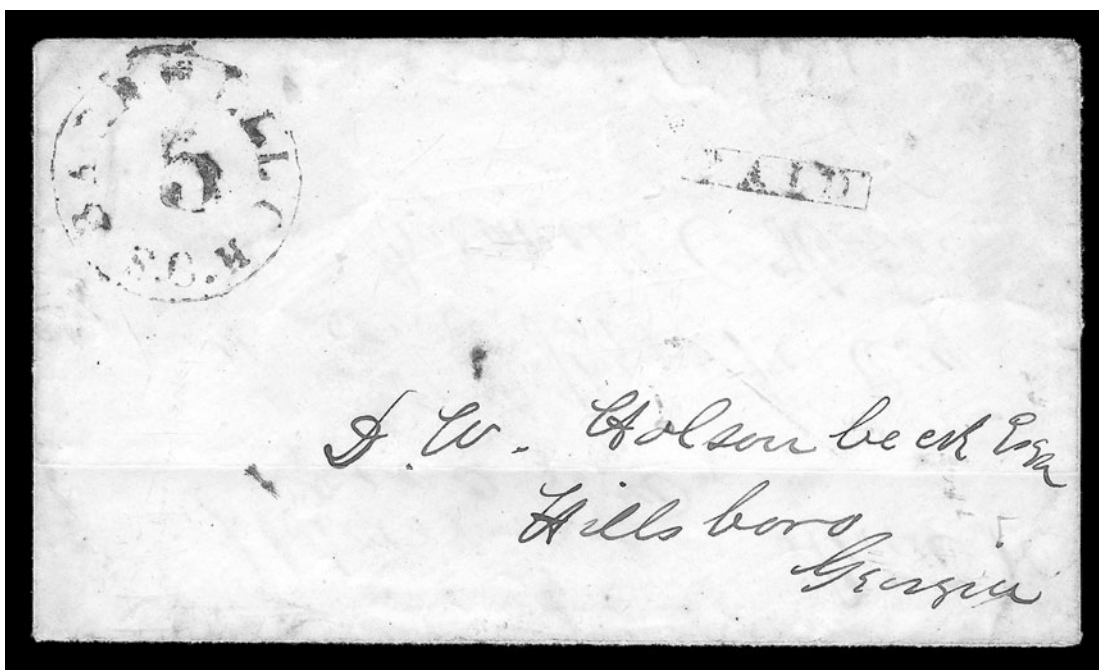 BARNWELL C.H. S.C.
5
PAID
D. W. Holsonbeck Esq
Hillsboro
Georgia